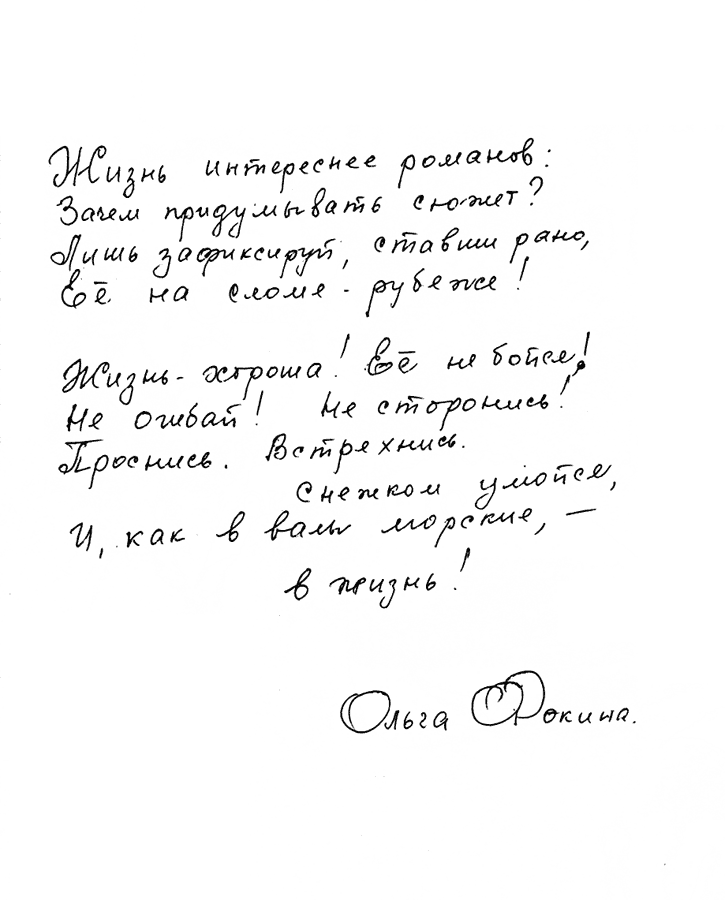 Жизнь интереснее романов:
Зачем придумывать сюжет?
Лишь зафиксируй, ставши рано,
Её на сломе - рубеже!
Жизнь - хороша! Её не бойся!
Не огибай! Не сторонись!
Проснись. Встряхнись.
Снежком умойся,
И, как в валы морские, —
в жизнь!
Ольга Фокина.